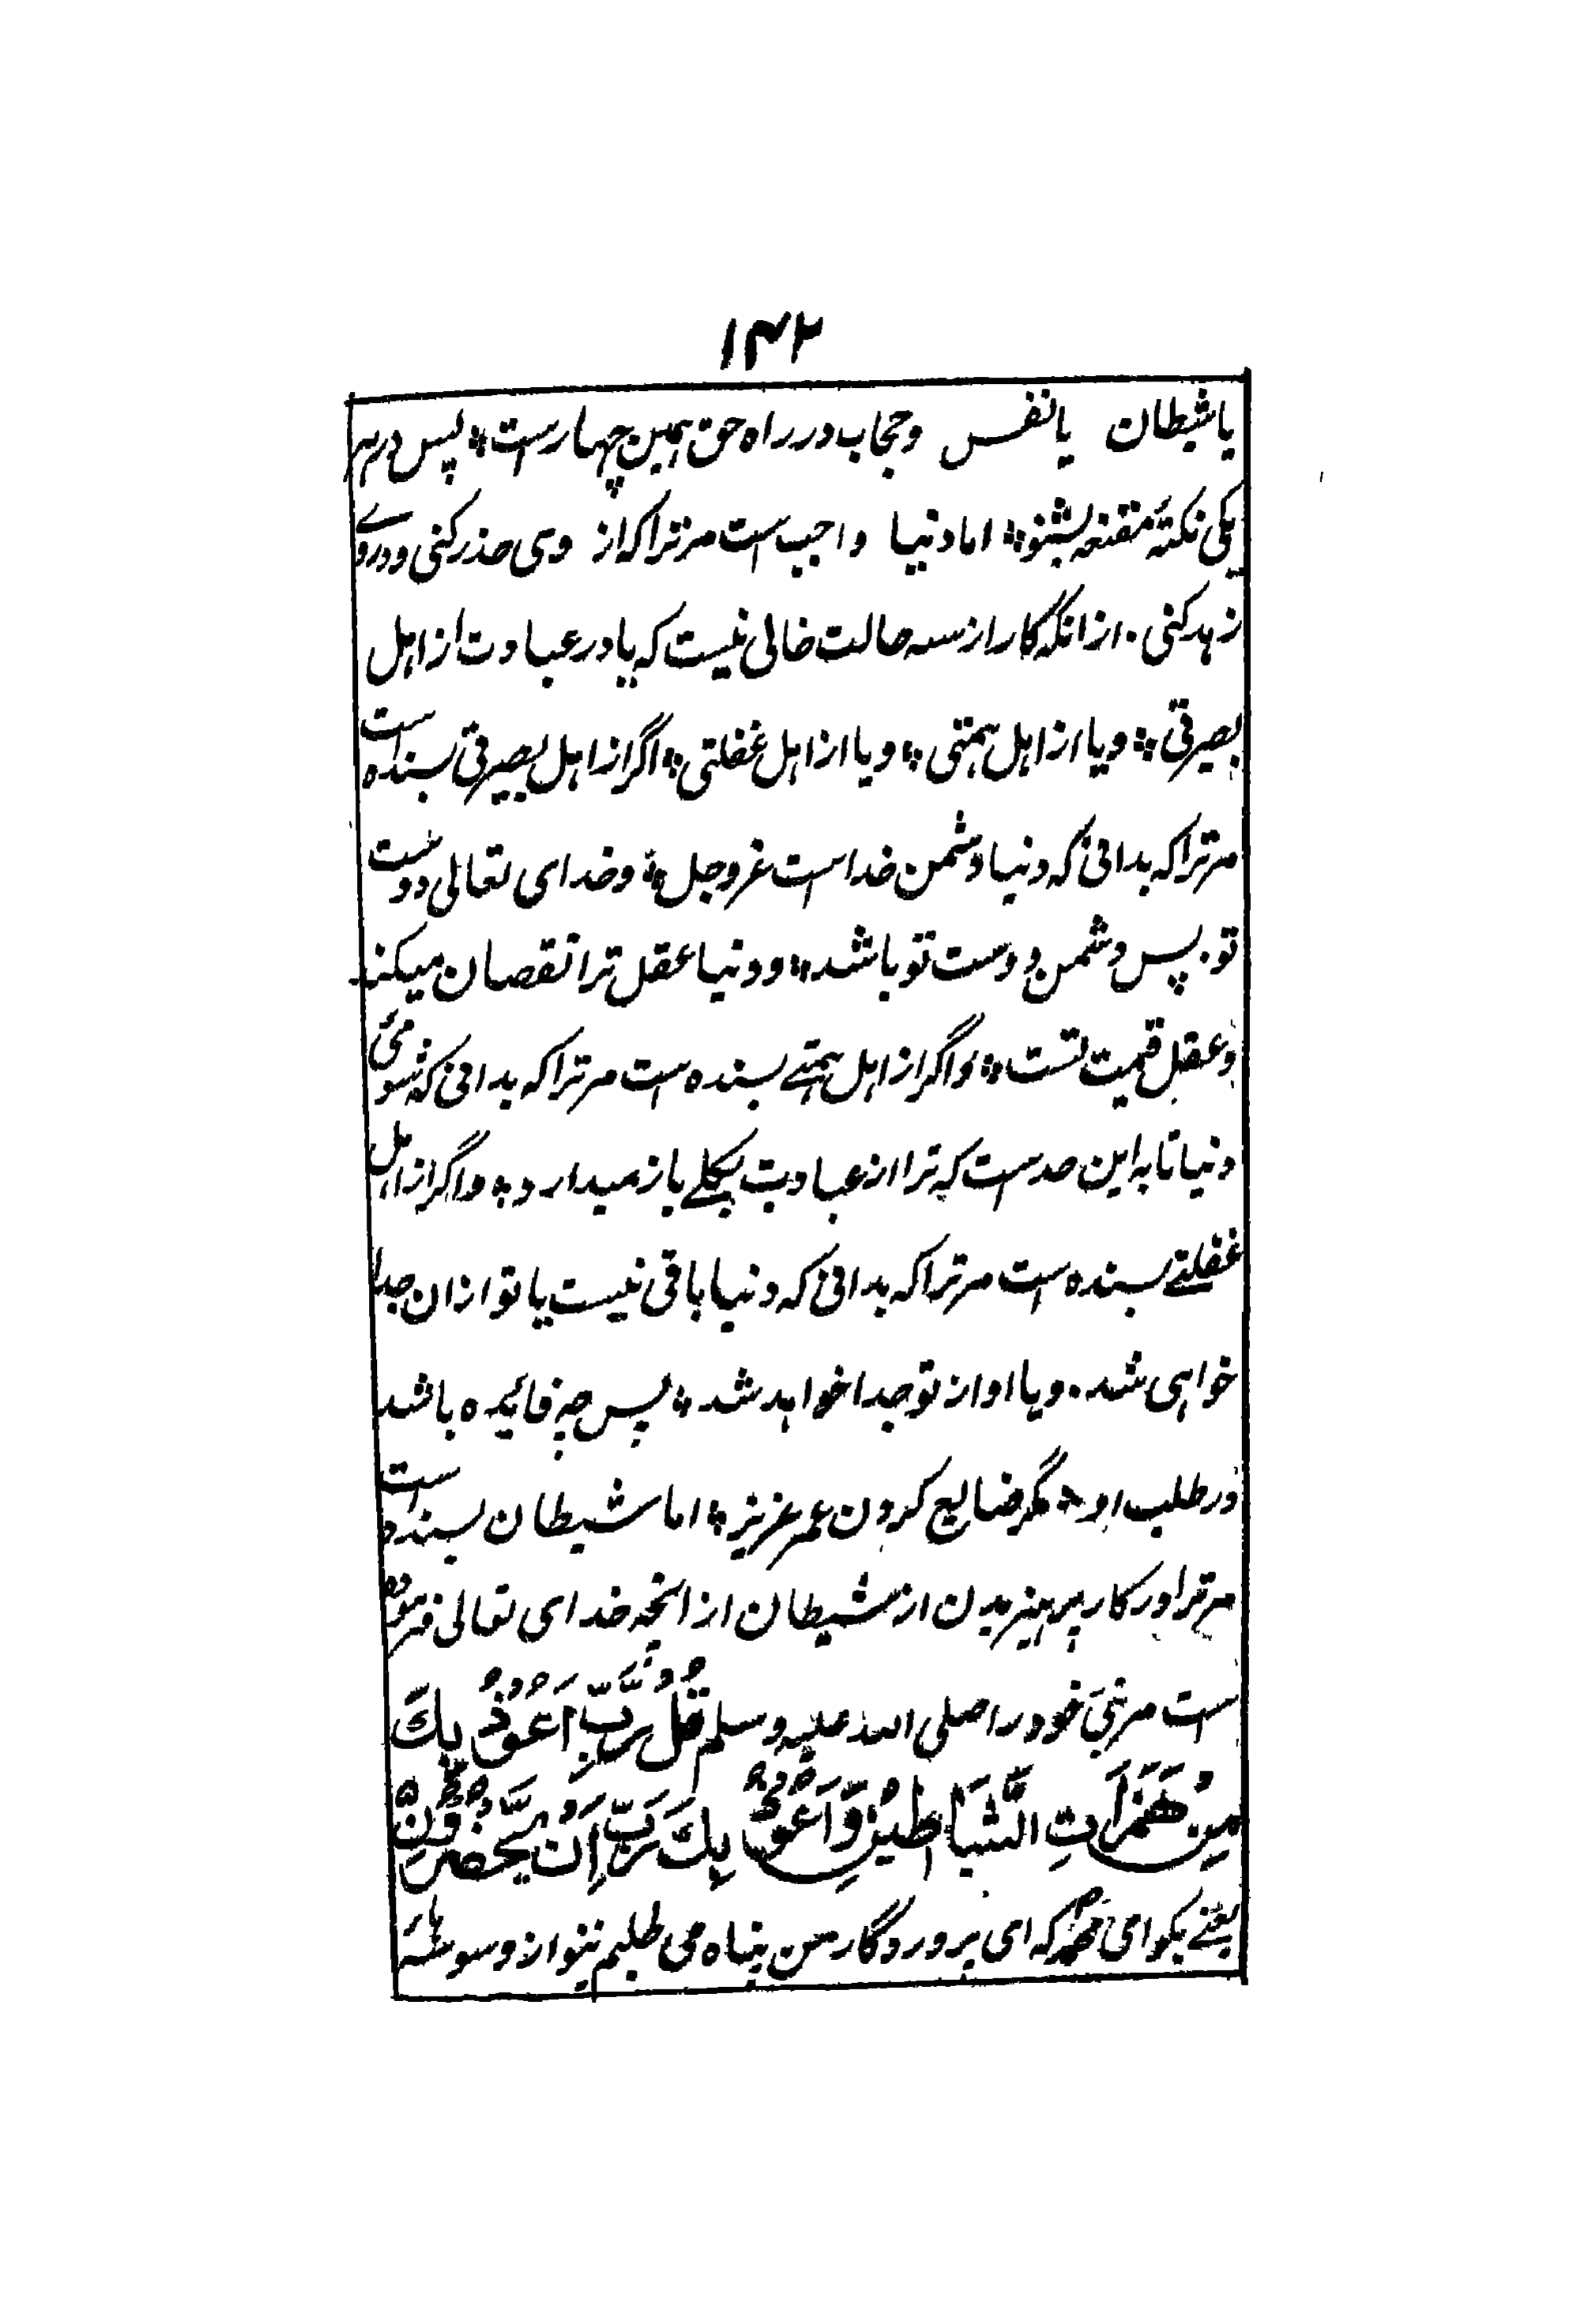 ۱۴۲
یا شیطان یا نفس و حجاب در راه حق همین چهارست ؞ پس در هر
یکی نکتهٔ مقنعه بشنو ؞ اما دنیا واجب است مر ترا که از وی حذر کنی و در وے
زهد کنی . از انکه کار از سه حالت خالی نیست که یا در عبادت از اهل
بصیرتی ؞ و یا از اهل همتی ؞ و یا از اهل غفلتی ؞ اگر از اهل بصیرتی بسنده است
مر ترا که بدانی که دنیا دشمن خداست عز وجل ؞ و خدای تعالی دوست
تو . پس دشمن دوست تو باشد ؞ و دنیا عقل ترا نقصان میکند
و عقل قیمت تست ؞ و اگر از اهل همتے بسنده است مر ترا که بدانی که شومئ
دنیا تا به این حدست که ترا از عبادت بکلے باز میدارد ؞ و اگر از اهل
غفلتے بسنده است مر ترا که بدانی که دنیا باقی نیست یا تو ازان جدا
خواهی شد . و یا او از تو جدا خواهد شد ؞ پس چه فائیده باشد
در طلب او ؞ مگر ضایع کردن عمر عزیز ؞ اما شیطان بسنده است
مر ترا در کار پرهیزیدن از شیطان از انچه خدای تعالی فرموده
است مر نبیَ خود را صلی الله علیه وسلم قُلْ رَّبِّ اَعُوْذُ بِكَ
مِنْ هَمَزَاتِ الشَّيَاطِيْنِ وَاَعُوْذُ بِكَ رَبِّ اَنْ يَّحْضُرُوْنِ
یعنے بگو ای محمد که ای پروردگار من پناه می طلبم بتو از وسوسهٔ هاے